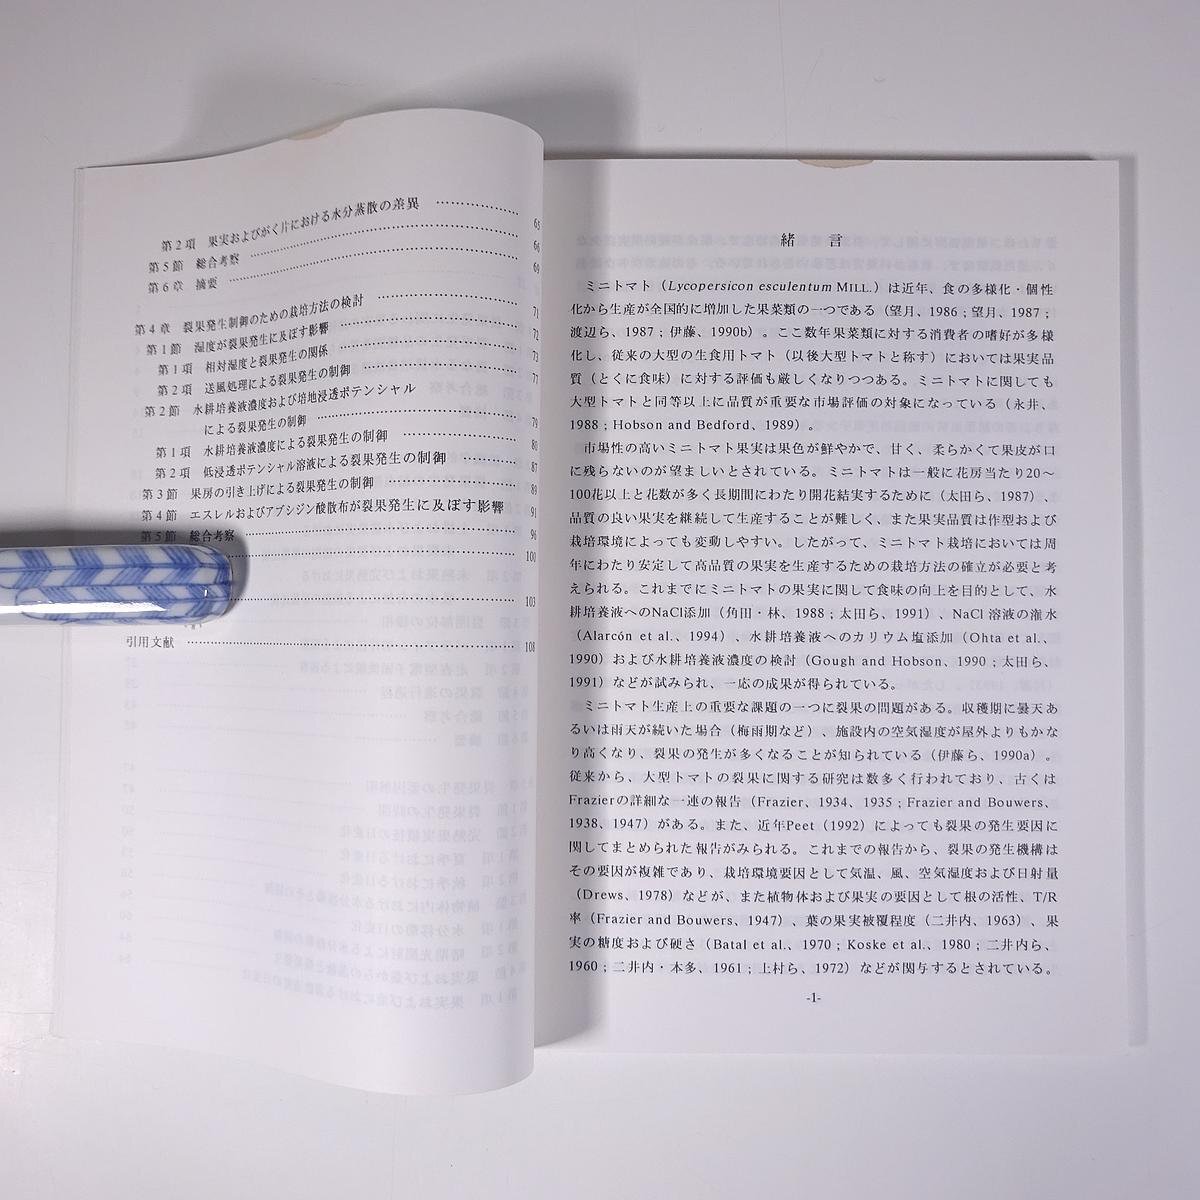 第2項 果実およびがく片における水分蒸散の差異 ………… 65
第5節 総合考察 ………… 66
第6章 摘要 ………… 69
第4章 裂果発生制御のための栽培方法の検討 ………… 71
第1節 湿度が裂果発生に及ぼす影響 ………… 72
第1項 相対湿度と裂果発生の関係 ………… 73
第2項 送風処理による裂果発生の制御 ………… 77
第2節 水耕培養液濃度および培地浸透ポテンシャル
による裂果発生の制御 ………… 79
第1項 水耕培養液濃度による裂果発生の制御 ………… 80
第2項 低浸透ポテンシャル溶液による裂果発生の制御 ………… 87
第3節 果房の引き上げによる裂果発生の制御 ………… 89
第4節 エスレルおよびアブシジン酸散布が裂果発生に及ぼす影響 91
第5節 総合考察 ………… 96
………… 100
………… 103
引用文献 ………… 108
緒 言
ミニトマト（Lycopersicon esculentum MILL.）は近年、食の多様化・個性
化から生産が全国的に増加した果菜類の一つである（望月、1986；望月、1987；
渡辺ら、1987；伊藤、1990b）。ここ数年果菜類に対する消費者の嗜好が多様
化し、従来の大型の生食用トマト（以後大型トマトと称す）においては果実品
質（とくに食味）に対する評価も厳しくなりつつある。ミニトマトに関しても
大型トマトと同等以上に品質が重要な市場評価の対象になっている（永井、
1988；Hobson and Bedford、1989）。
市場性の高いミニトマト果実は果色が鮮やかで、甘く、柔らかくて果皮が口
に残らないのが望ましいとされている。ミニトマトは一般に花房当たり20～
100花以上と花数が多く長期間にわたり開花結実するために（太田ら、1987）、
品質の良い果実を継続して生産することが難しく、また果実品質は作型および
栽培環境によっても変動しやすい。したがって、ミニトマト栽培においては周
年にわたり安定して高品質の果実を生産するための栽培方法の確立が必要と考
えられる。これまでにミニトマトの果実に関して食味の向上を目的として、水
耕培養液へのNaCl添加（角田・林、1988；太田ら、1991）、NaCl 溶液の潅水
（Alarcón et al.、1994）、水耕培養液へのカリウム塩添加（Ohta et al.、
1990）および水耕培養液濃度の検討（Gough and Hobson、1990；太田ら、
1991）などが試みられ、一応の成果が得られている。
ミニトマト生産上の重要な課題の一つに裂果の問題がある。収穫期に曇天あ
るいは雨天が続いた場合（梅雨期など）、施設内の空気湿度が屋外よりもかな
り高くなり、裂果の発生が多くなることが知られている（伊藤ら、1990a）。
従来から、大型トマトの裂果に関する研究は数多く行われており、古くは
Frazierの詳細な一連の報告（Frazier、1934、1935；Frazier and Bouwers、
1938、1947）がある。また、近年Peet（1992）によっても裂果の発生要因に
関してまとめられた報告がみられる。これまでの報告から、裂果の発生機構は
その要因が複雑であり、栽培環境要因として気温、風、空気湿度および日射量
（Drews、1978）などが、また植物体および果実の要因として根の活性、T/R
率（Frazier and Bouwers、1947）、葉の果実被覆程度（二井内、1963）、果
実の糖度および硬さ（Batal et al.、1970；Koske et al.、1980；二井内ら、
1960；二井内・本多、1961；上村ら、1972）などが関与するとされている。
-1-